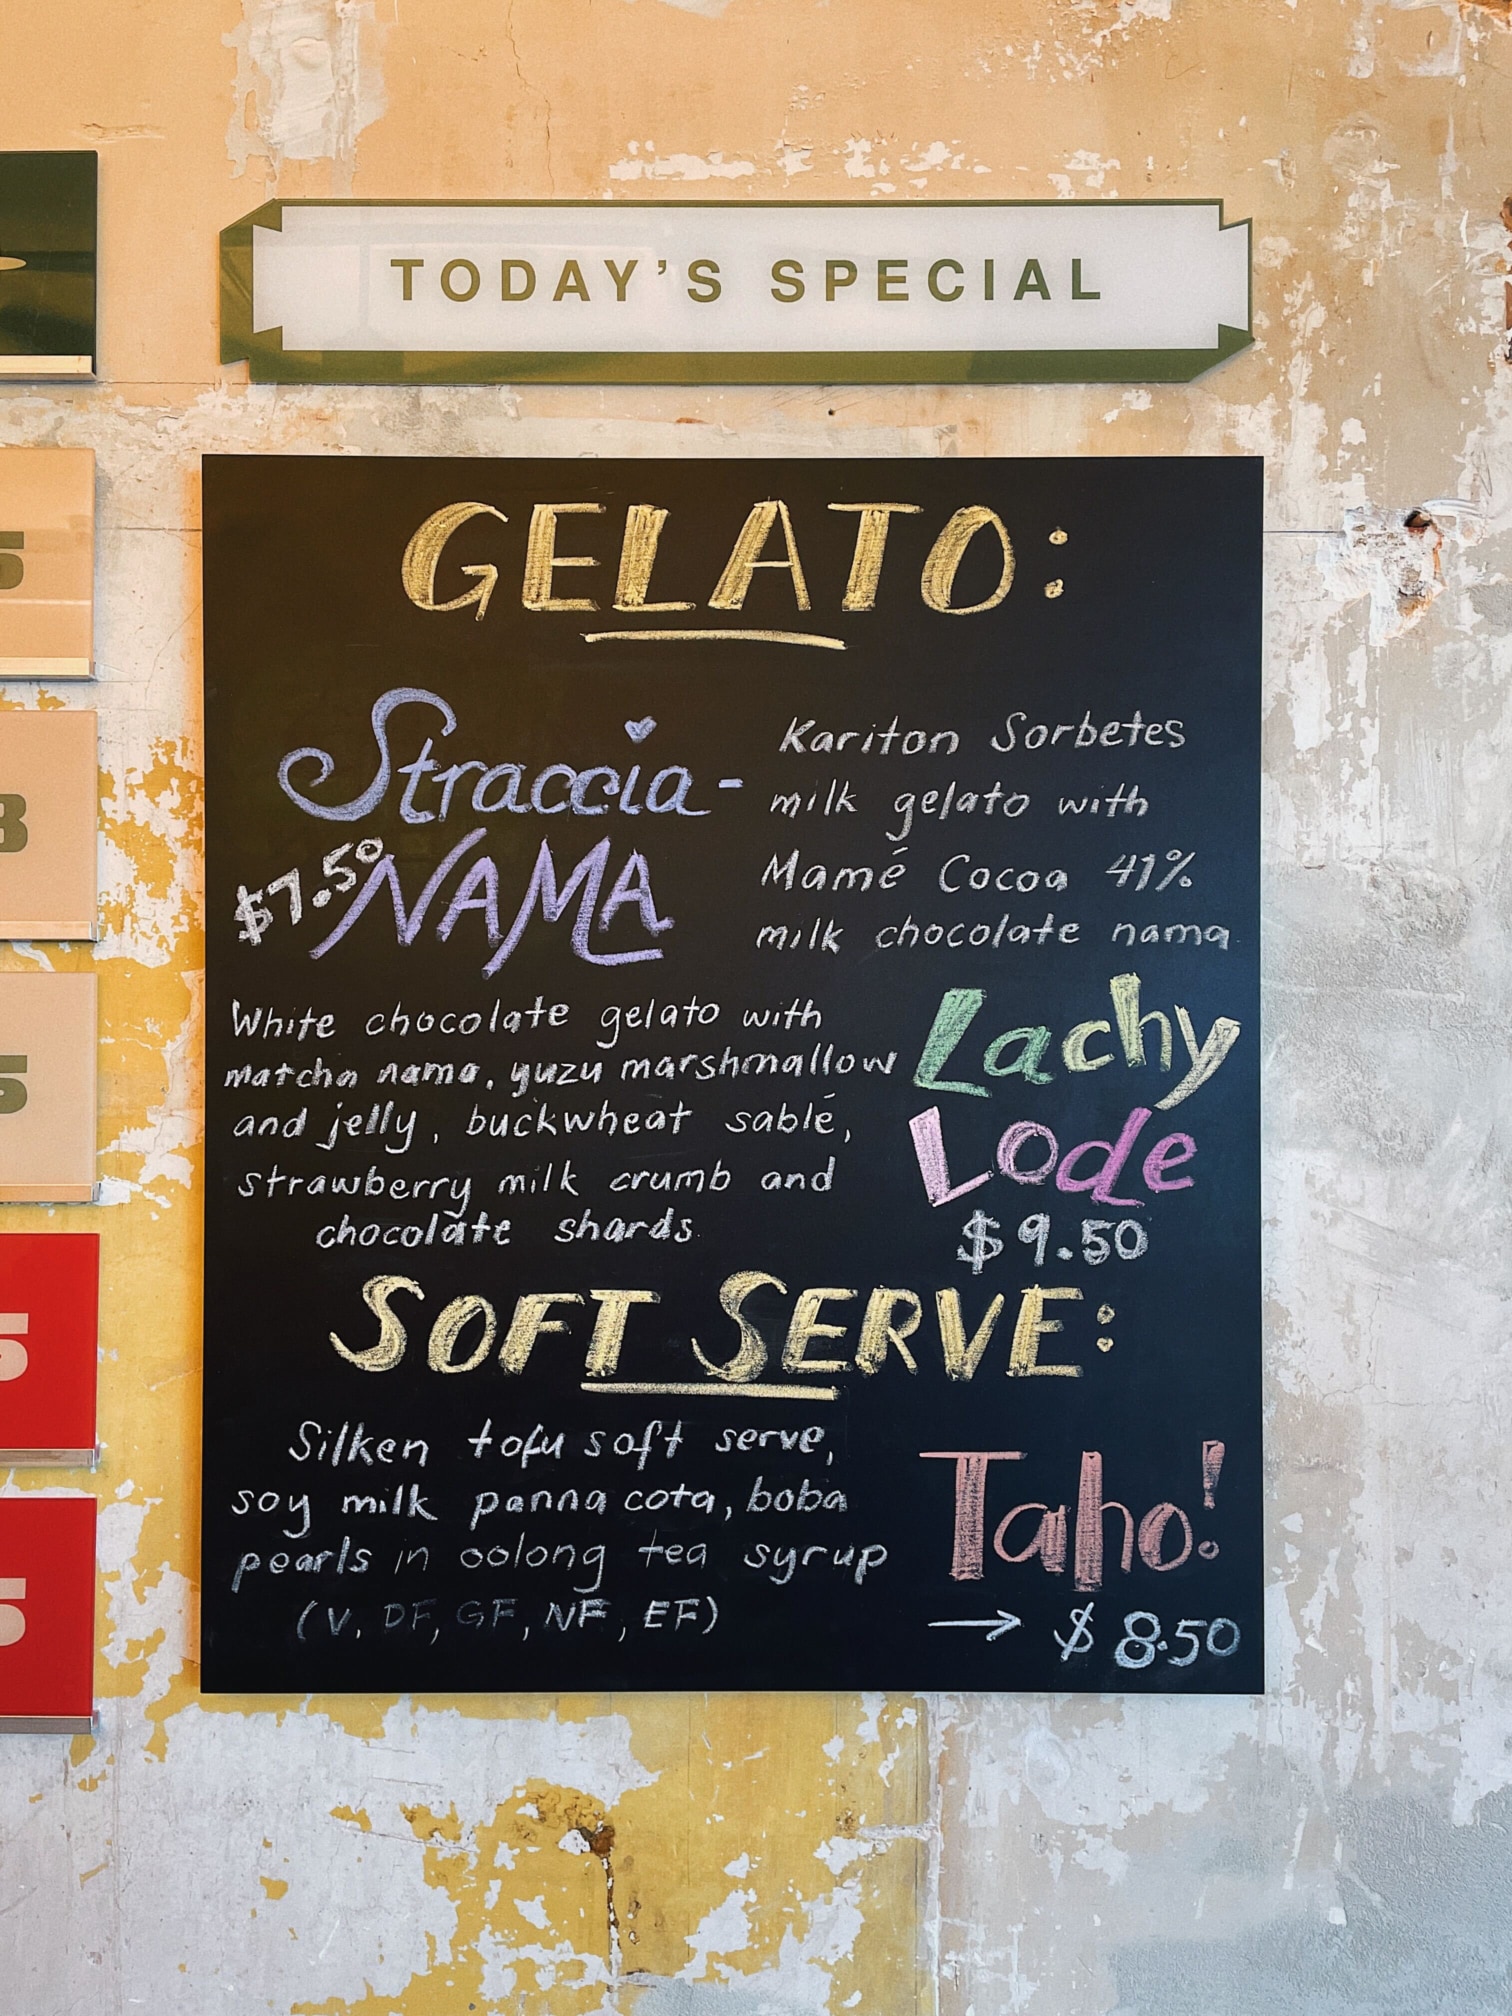 TODAY'S SPECIAL
GELATO:
Straccia-
NAMA
$7.50
Kariton Sorbetes
milk gelato with
Mamé Cocoa 41%
milk chocolate nama
White chocolate gelato with
matcha nama, yuzu marshmallow
and jelly, buckwheat sablé,
strawberry milk crumb and
chocolate shards.
Lachy
Lode
$9.50
SOFT SERVE:
Silken tofu soft serve,
soy milk panna cota, boba
pearls in oolong tea syrup
(V, DF, GF, NF, EF)
Taho!
→ $8.50